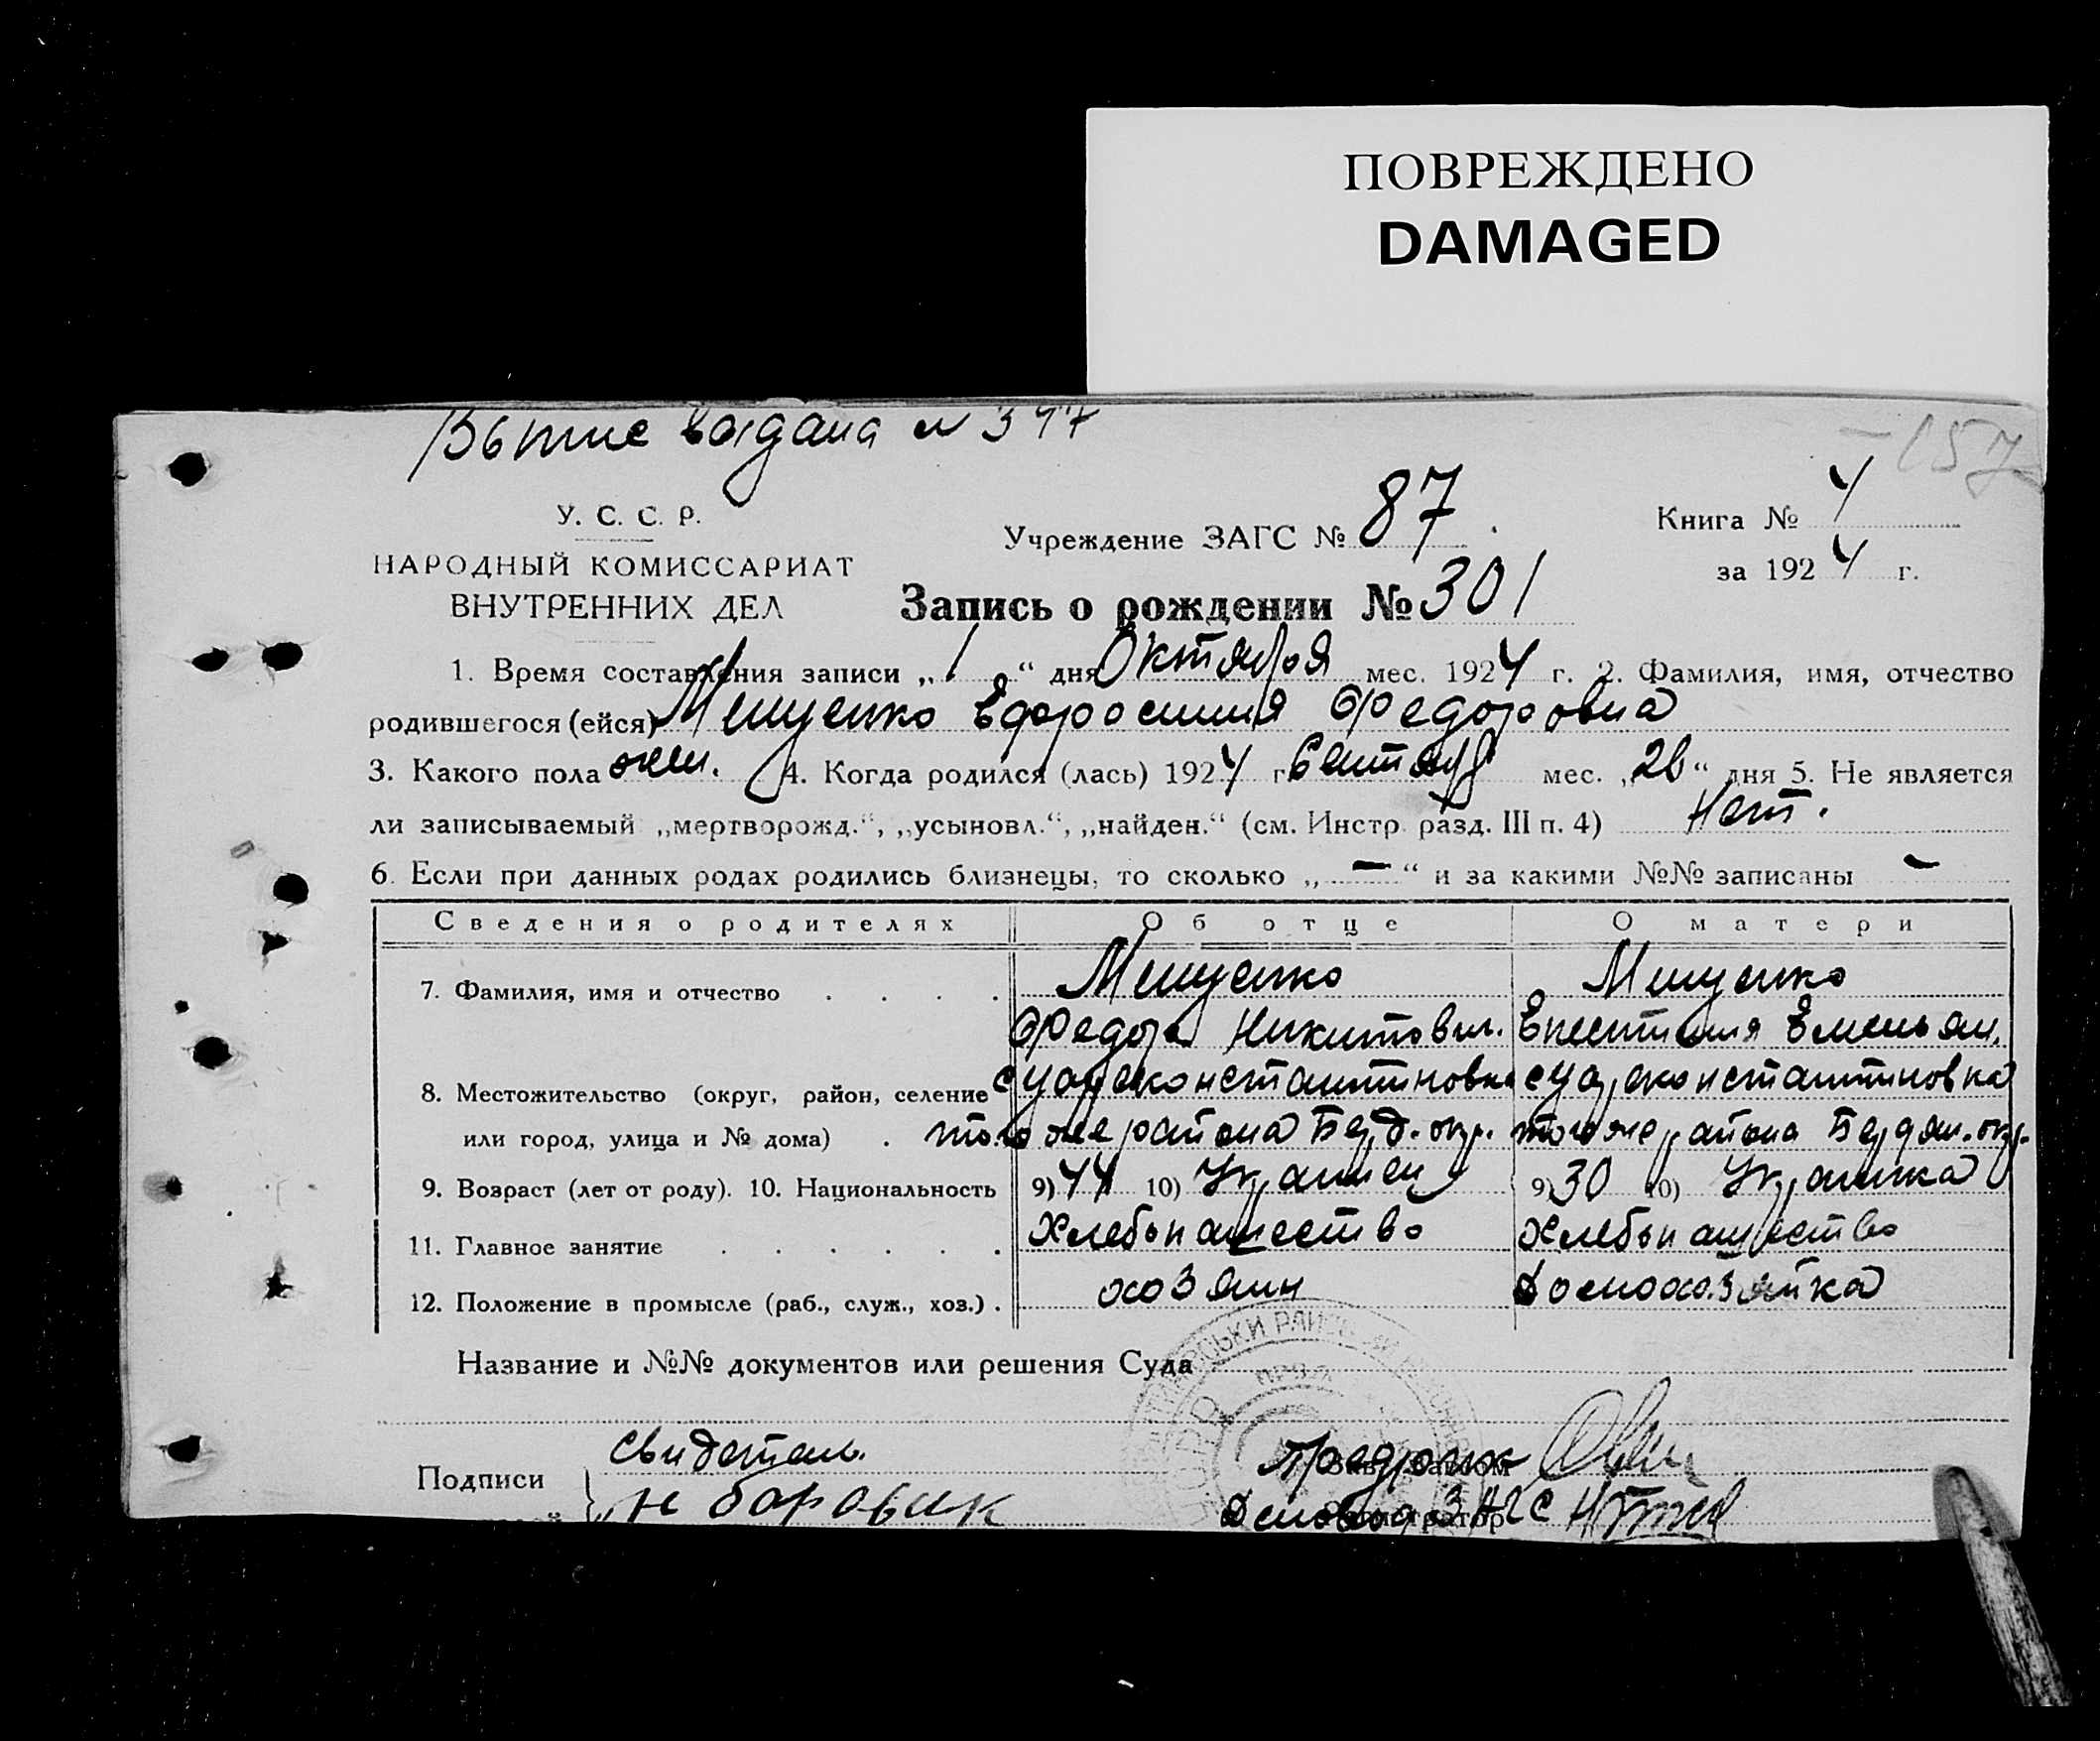 ПОВРЕЖДЕНО
DAMAGED
выдана N 347
157
У. С. С. Р.
НАРОДНЫЙ КОМИССАРИАТ
ВНУТРЕННИХ ДЕЛ
Учреждение ЗАГС № 87
Книга № 4
за 1924 г.
Запись о рождении № 301
1. Время составления записи „1“ дня Октября мес. 1924 г. 2. Фамилия, имя, отчество
родившегося (ейся) Мищенко Федоровна
3. Какого пола жен. 4. Когда родился (лась) 1924 г. Сентяб мес. „26“ дня 5. Не является
ли записываемый „мертворожд.“, „усыновл.“, „найден.“ (см. Инстр. разд. III п. 4) Нет.
6. Если при данных родах родились близнецы, то сколько „—“ и за какими №№ записаны —
Сведения о родителях Об отце О матери
7. Фамилия, имя и отчество Мищенко Мищенко
Федор Никитович. Емельян.
8. Местожительство (округ, район, селение
или город, улица и № дома) того же района Берд. окр. того же района Бердян. окр.
9. Возраст (лет от роду). 10. Национальность 9) 44 10) Украинец 9) 30 10) Украинка
11. Главное занятие Хлебопашество Хлебопашество
12. Положение в промысле (раб., служ., хоз.) хозяин Домохозяйка
Название и №№ документов или решения Суда
Подписи свидетель
Н Боровик
ЗАГС